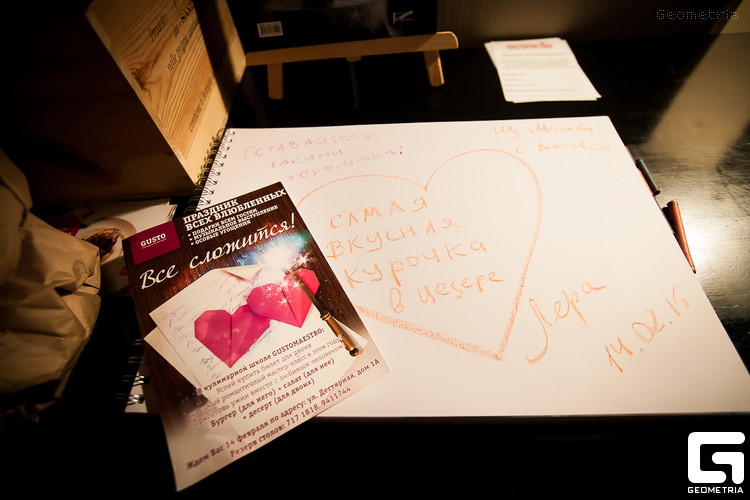 Geometria
ОСТАВАЙТЕСЬ
ТАКИМИ
из Москвы
с любовью
САМАЯ
ВКУСНАЯ
КУРОЧКА
в цезаре
Лера
14.02.15
GUSTO
ПРАЗДНИК
ВСЕХ ВЛЮБЛЕННЫХ
• ПОДАРКИ ВСЕМ ГОСТЯМ
• МУЗЫКАЛЬНОЕ ВЫСТУПЛЕНИЕ
• ОСОБЫЕ УГОЩЕНИЯ
Все сложится!
В кулинарной школе GUSTOMAESTRO:
Успей купить билет для двоих
романтичный мастер-класс в этом году
Приготовь ужин вместе с любимым человеком
Бургер (для него) + салат (для нее)
+ десерт (для двоих)
Ждем Вас 14 февраля по адресу: ул. Дегтярная, дом 1А
Резерв столов: 717 1818, 9411744
G
GEOMETRIA